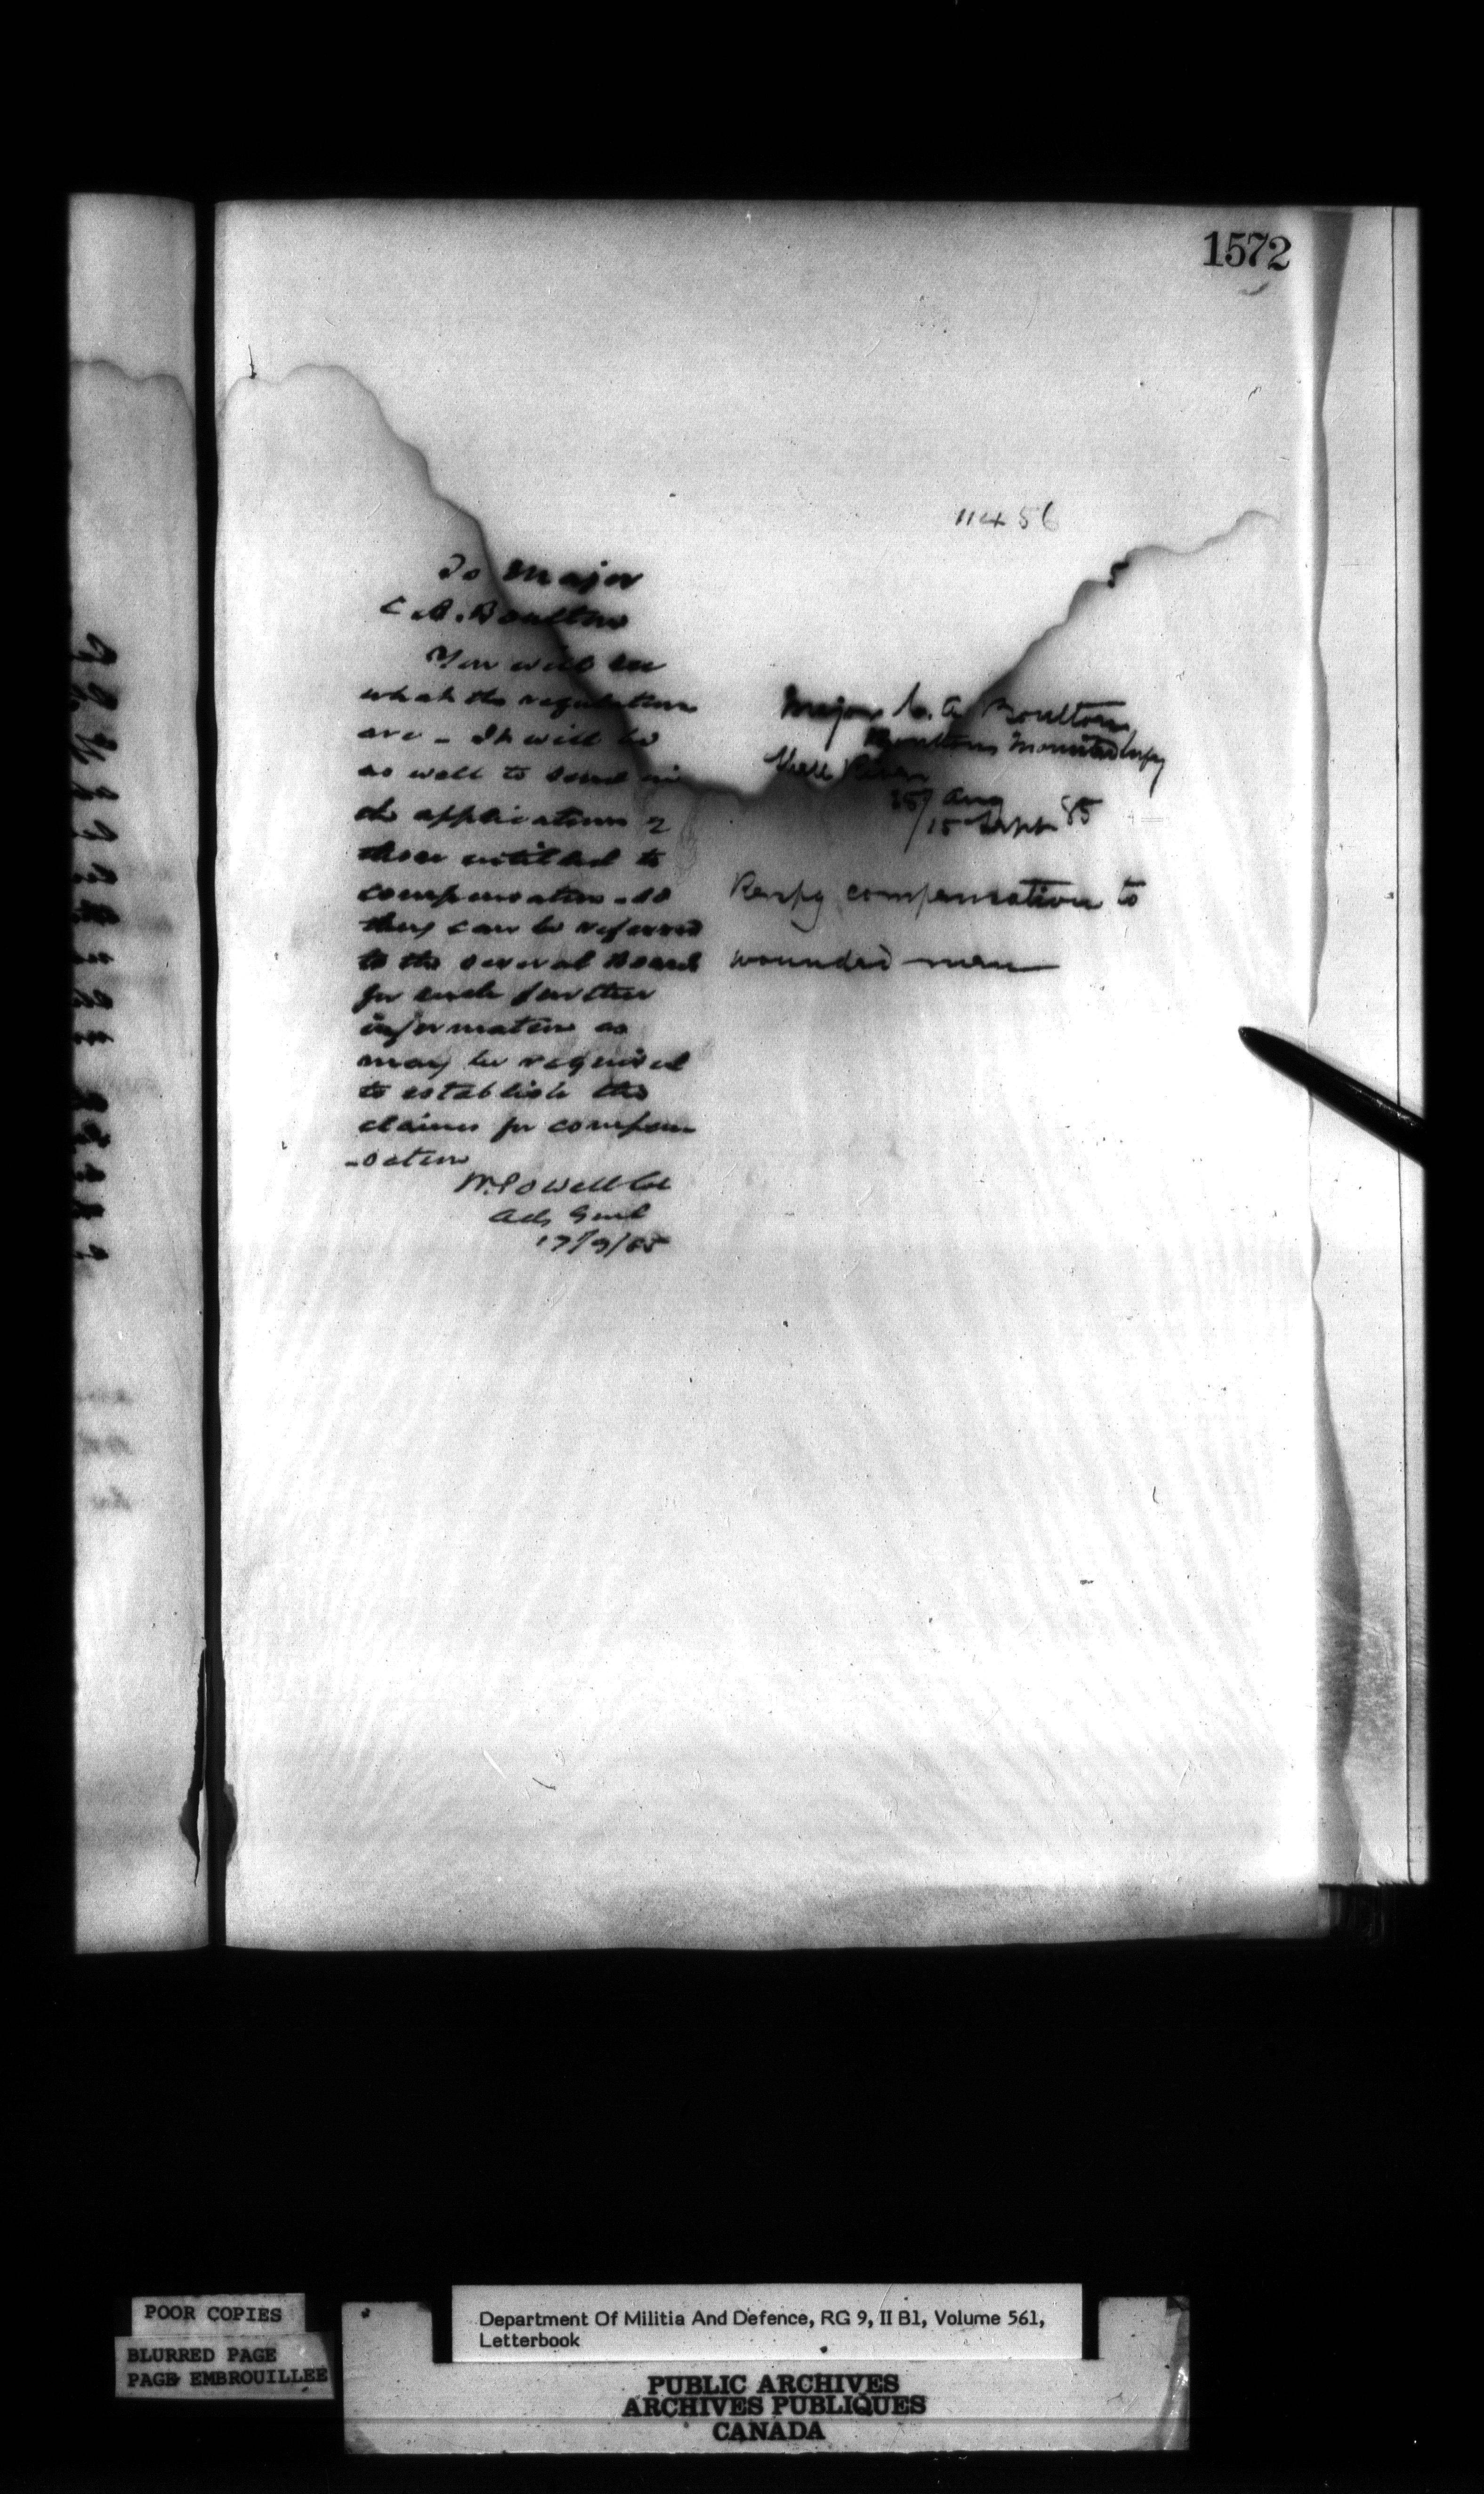 1572
11456
To Major
C.A. Boulton
You will see
what the regulations
are - It will be
as well to send in
the applications of
those entitled to
compensation - so
they can be referred
to the several Board
for such further
information as
may be required
to establish the
claims for compen
-sation
W. Powell Col
Adj Genl
17/9/85
Major C. A Boulton
Boultons Mounted Infy
Shell River
25/ Aug
/15 Sept 85
Respg compensation to
wounded men
POOR COPIES
BLURRED PAGE
PAGE EMBROUILLEE
Department Of Militia And Defence, RG 9, II B1, Volume 561,
Letterbook
PUBLIC ARCHIVES
ARCHIVES PUBLIQUES
CANADA